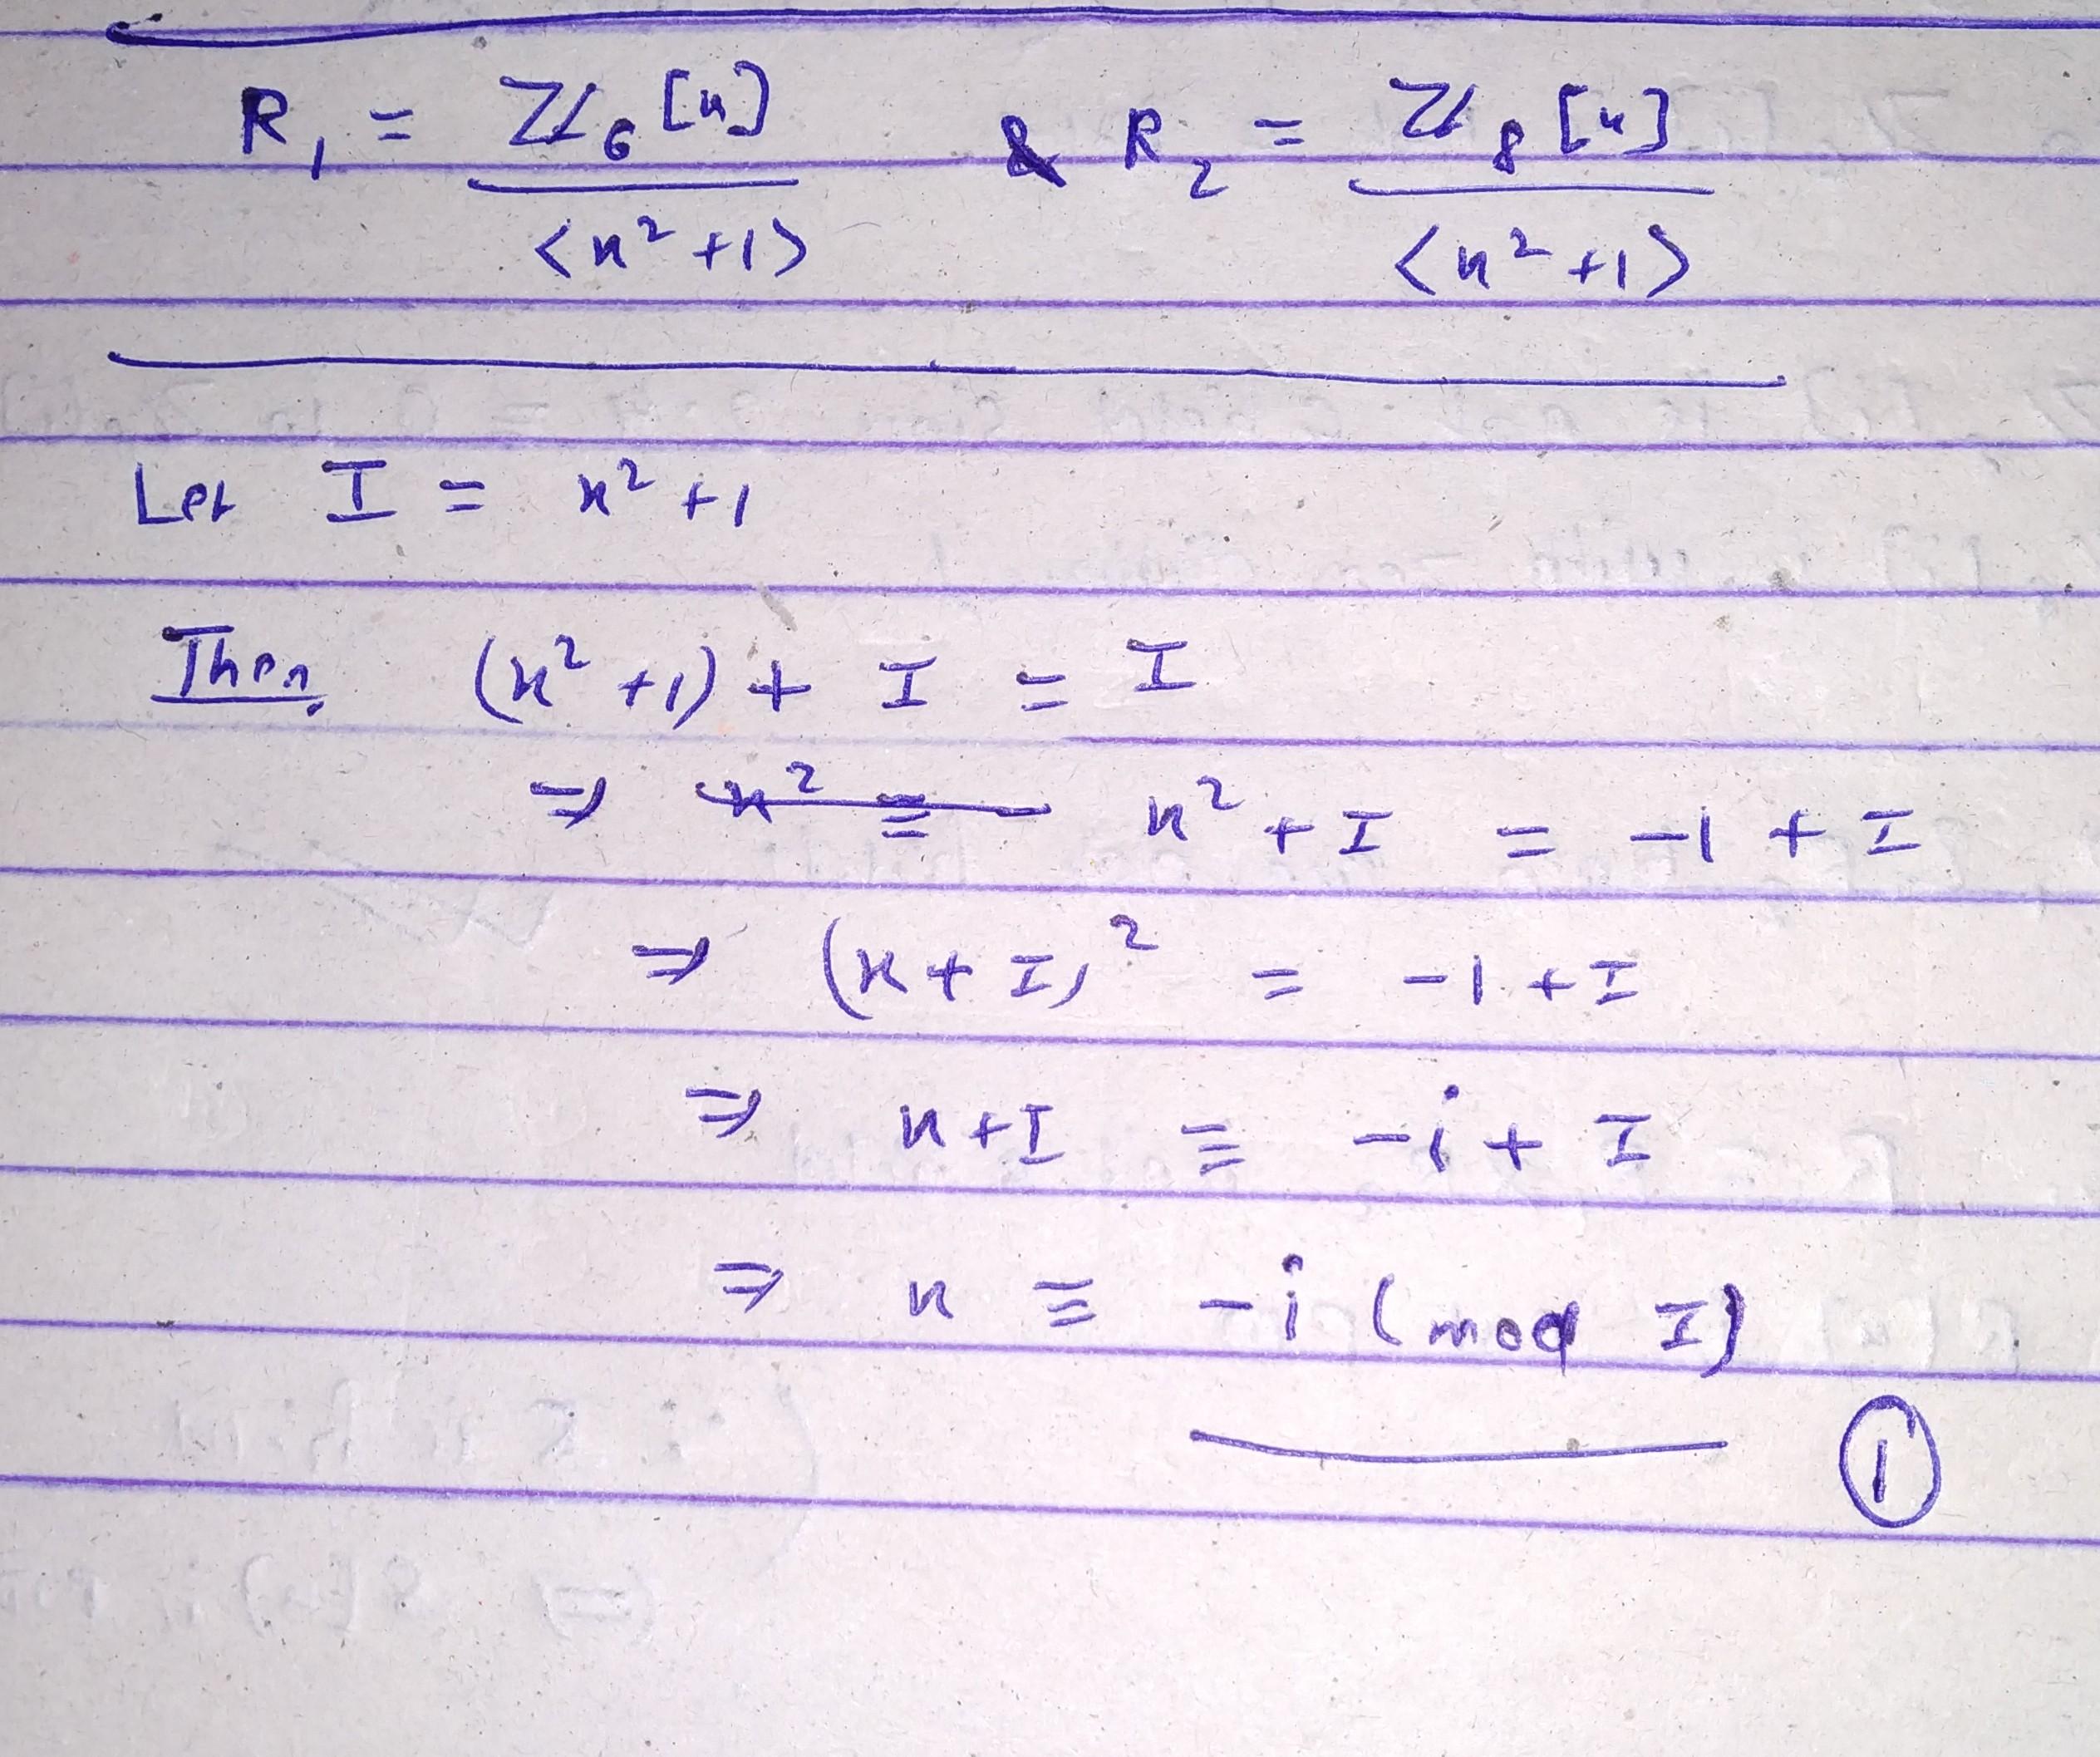 R₁ = ℤ₆[x] / <x² + 1> & R₂ = ℤ₈[x] / <x² + 1>
Let I = x² + 1
Then (x² + 1) + I = I
⇒ x² + I = -1 + I
⇒ (x + I)² = -1 + I
⇒ x + I ≡ -i + I
⇒ x ≡ -i (mod I)
①